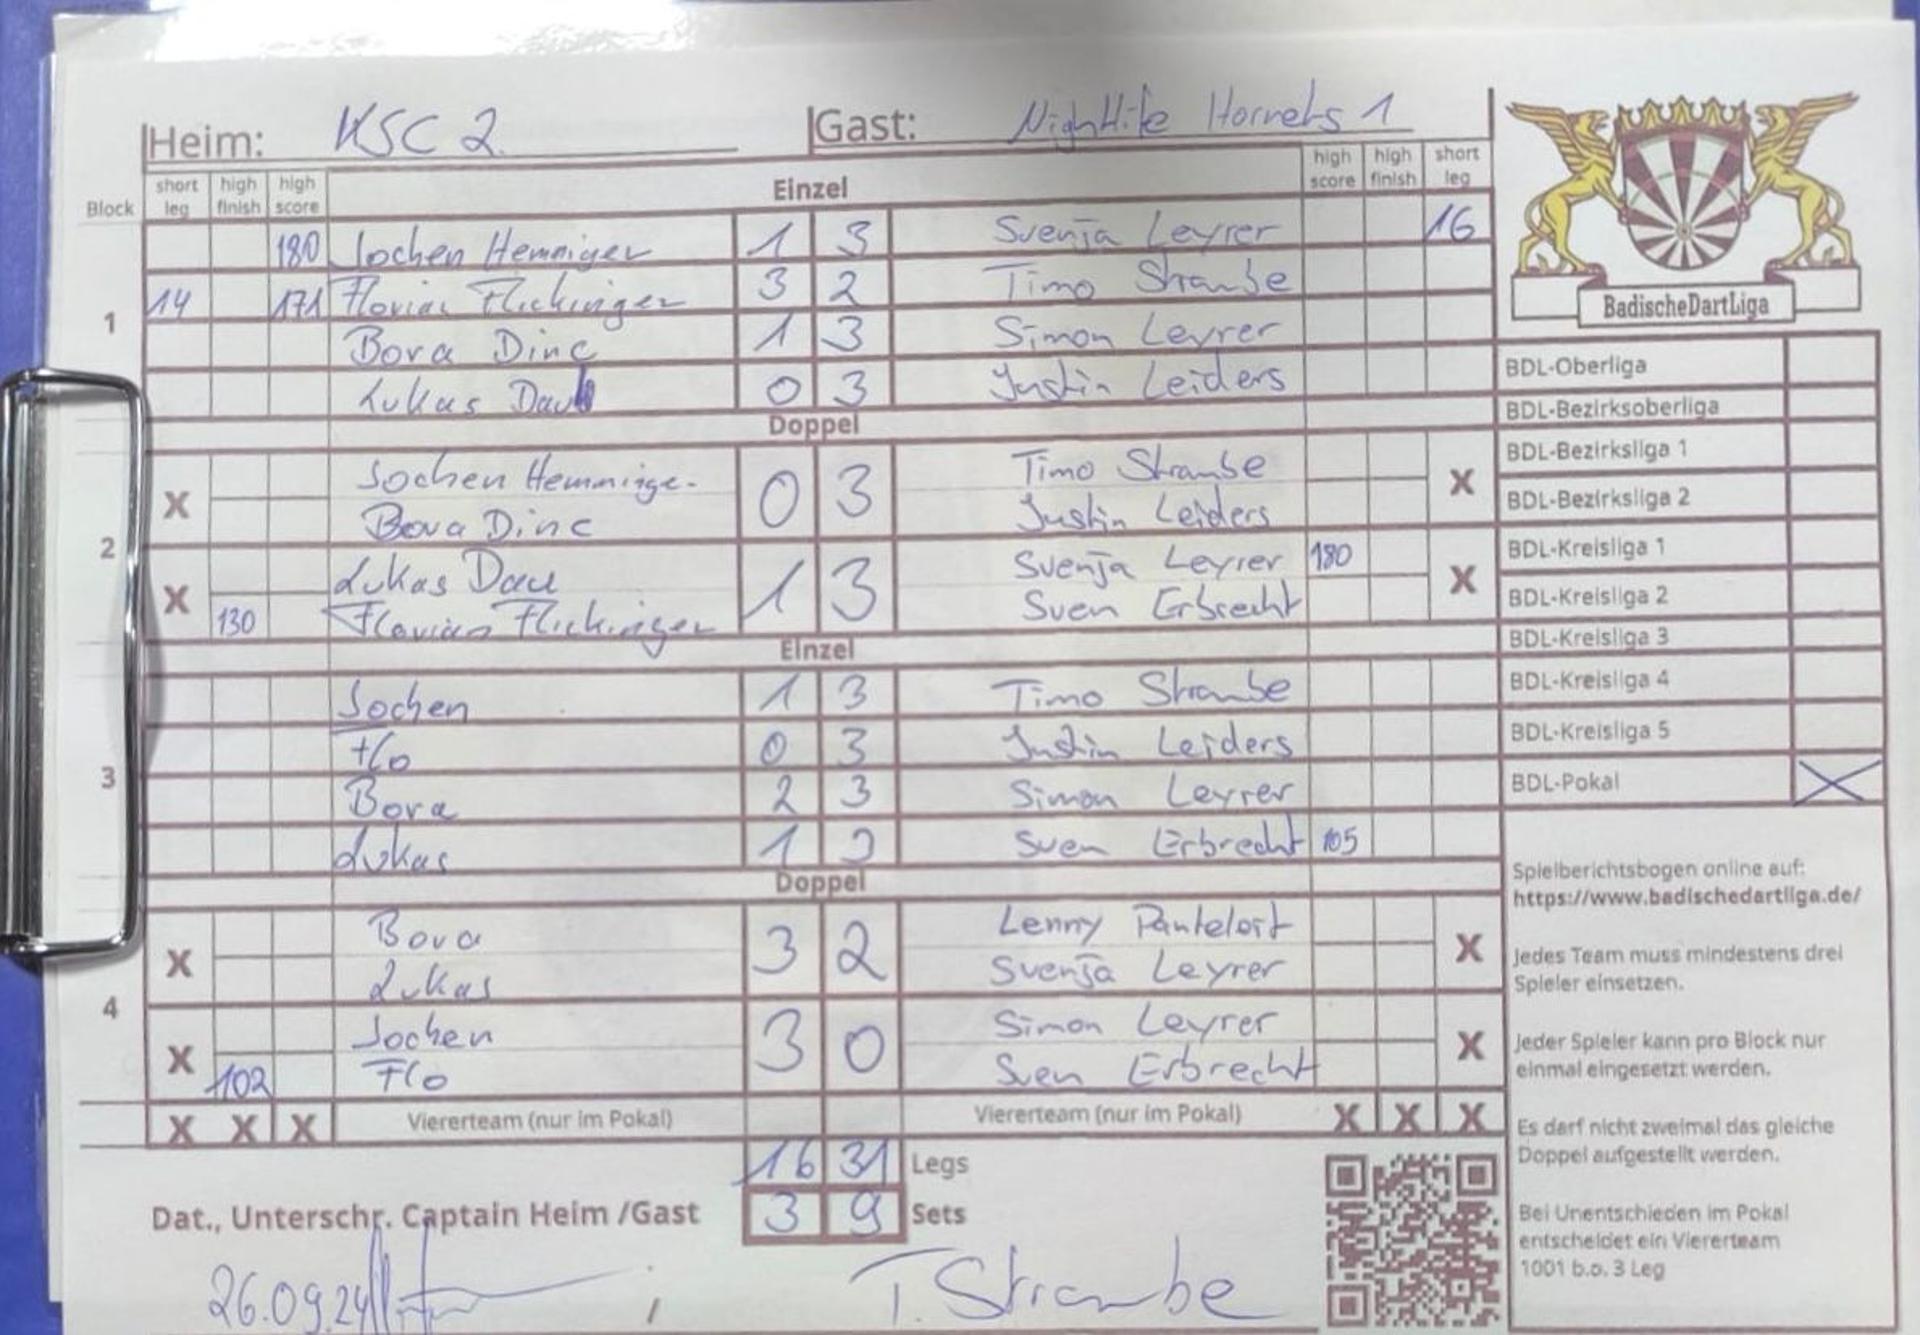 Heim: KSC 2 Gast: Nightlife Hornets 1
Block short leg high finish high score Einzel high score high finish short leg
180 Jochen Hemniger 1 3 Svenja Leyrer 16
14 171 Florian Flickinger 3 2 Timo Straube
1
Bora Dinc 1 3 Simon Leyrer
Lukas Dau 0 3 Justin Leiders
Doppel
X Jochen Hemminge- 0 3 Timo Straube X
Bora Dinc Justin Leiders
2
X Lukas Dau 1 3 Svenja Leyrer 180 X
130 Florian Flickinger Sven Erbrecht
Einzel
Jochen 1 3 Timo Straube
Flo 0 3 Justin Leiders
3
Bora 2 3 Simon Leyrer
Lukas 1 3 Sven Erbrecht 105
Doppel
X Bora 3 2 Lenny X
Lukas Svenja Leyrer
4
X Jochen 3 0 Simon Leyrer X
102 Flo Sven Erbrecht
X X X Viererteam (nur im Pokal) Viererteam (nur im Pokal) X X X
16 31 Legs
Dat., Unterschr. Captain Heim /Gast 3 9 Sets
26.09.24 / T. Straube
BadischeDartLiga
BDL-Oberliga
BDL-Bezirksoberliga
BDL-Bezirksliga 1
BDL-Bezirksliga 2
BDL-Kreisliga 1
BDL-Kreisliga 2
BDL-Kreisliga 3
BDL-Kreisliga 4
BDL-Kreisliga 5
BDL-Pokal X
Spielberichtsbogen online auf:
https://www.badischedartliga.de/
Jedes Team muss mindestens drei
Spieler einsetzen.
Jeder Spieler kann pro Block nur
einmal eingesetzt werden.
Es darf nicht zweimal das gleiche
Doppel aufgestellt werden.
Bei Unentschieden im Pokal
entscheidet ein Viererteam
1001 b.o. 3 Leg